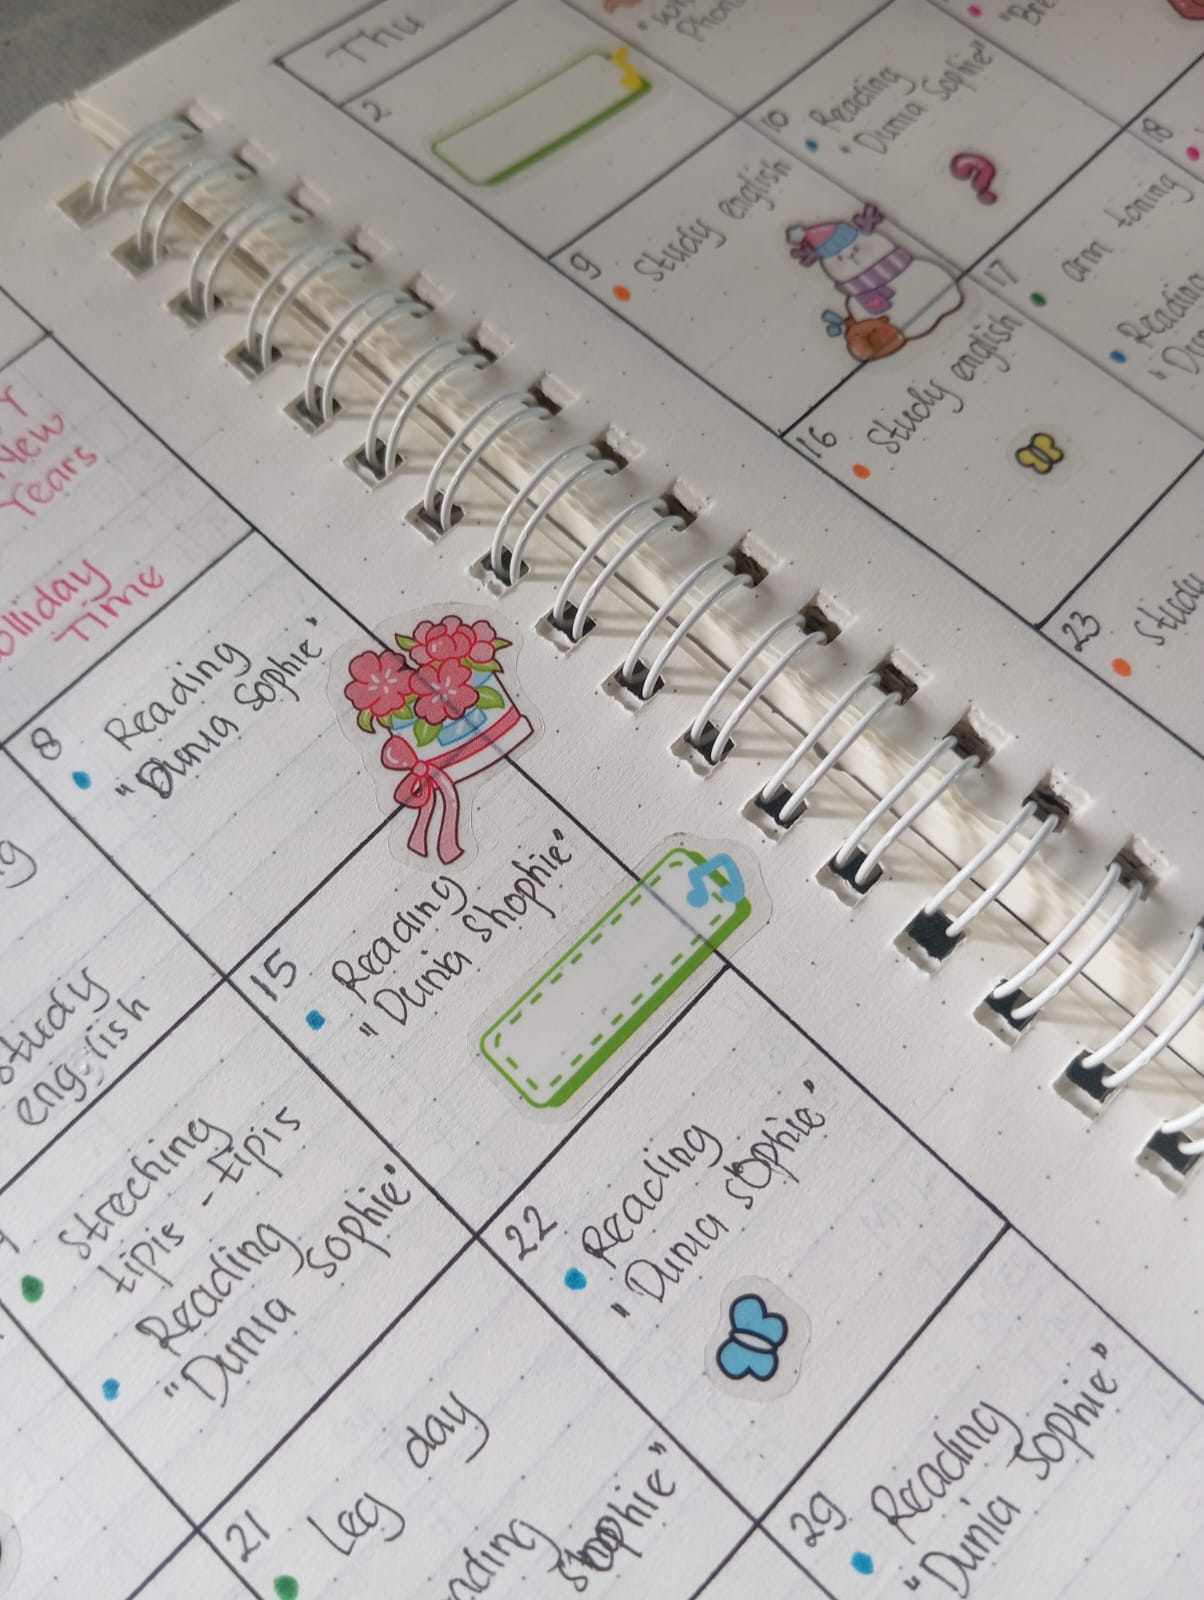 Thu
2
10
Reading
"Dunia Sophie"
18
9
Study english
17
arm toning
Reading
16
Study english
23
Study
New
Years
Time
8
Reading
"Dunia Sophie"
study
english
15
Reading
"Dunia Shophie"
Streching
tipis - tipis
Reading
"Dunia Sophie"
22
Reading
"Dunia sophie"
21
Leg day
29
Reading
"Dunia Sophie"